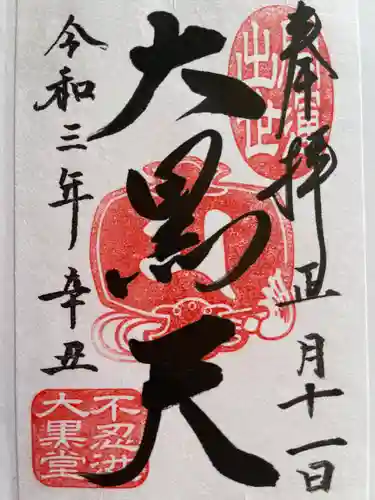 奉拝 正月十一日
大黒天
令和三年辛丑
出世
不忍池
大黒堂